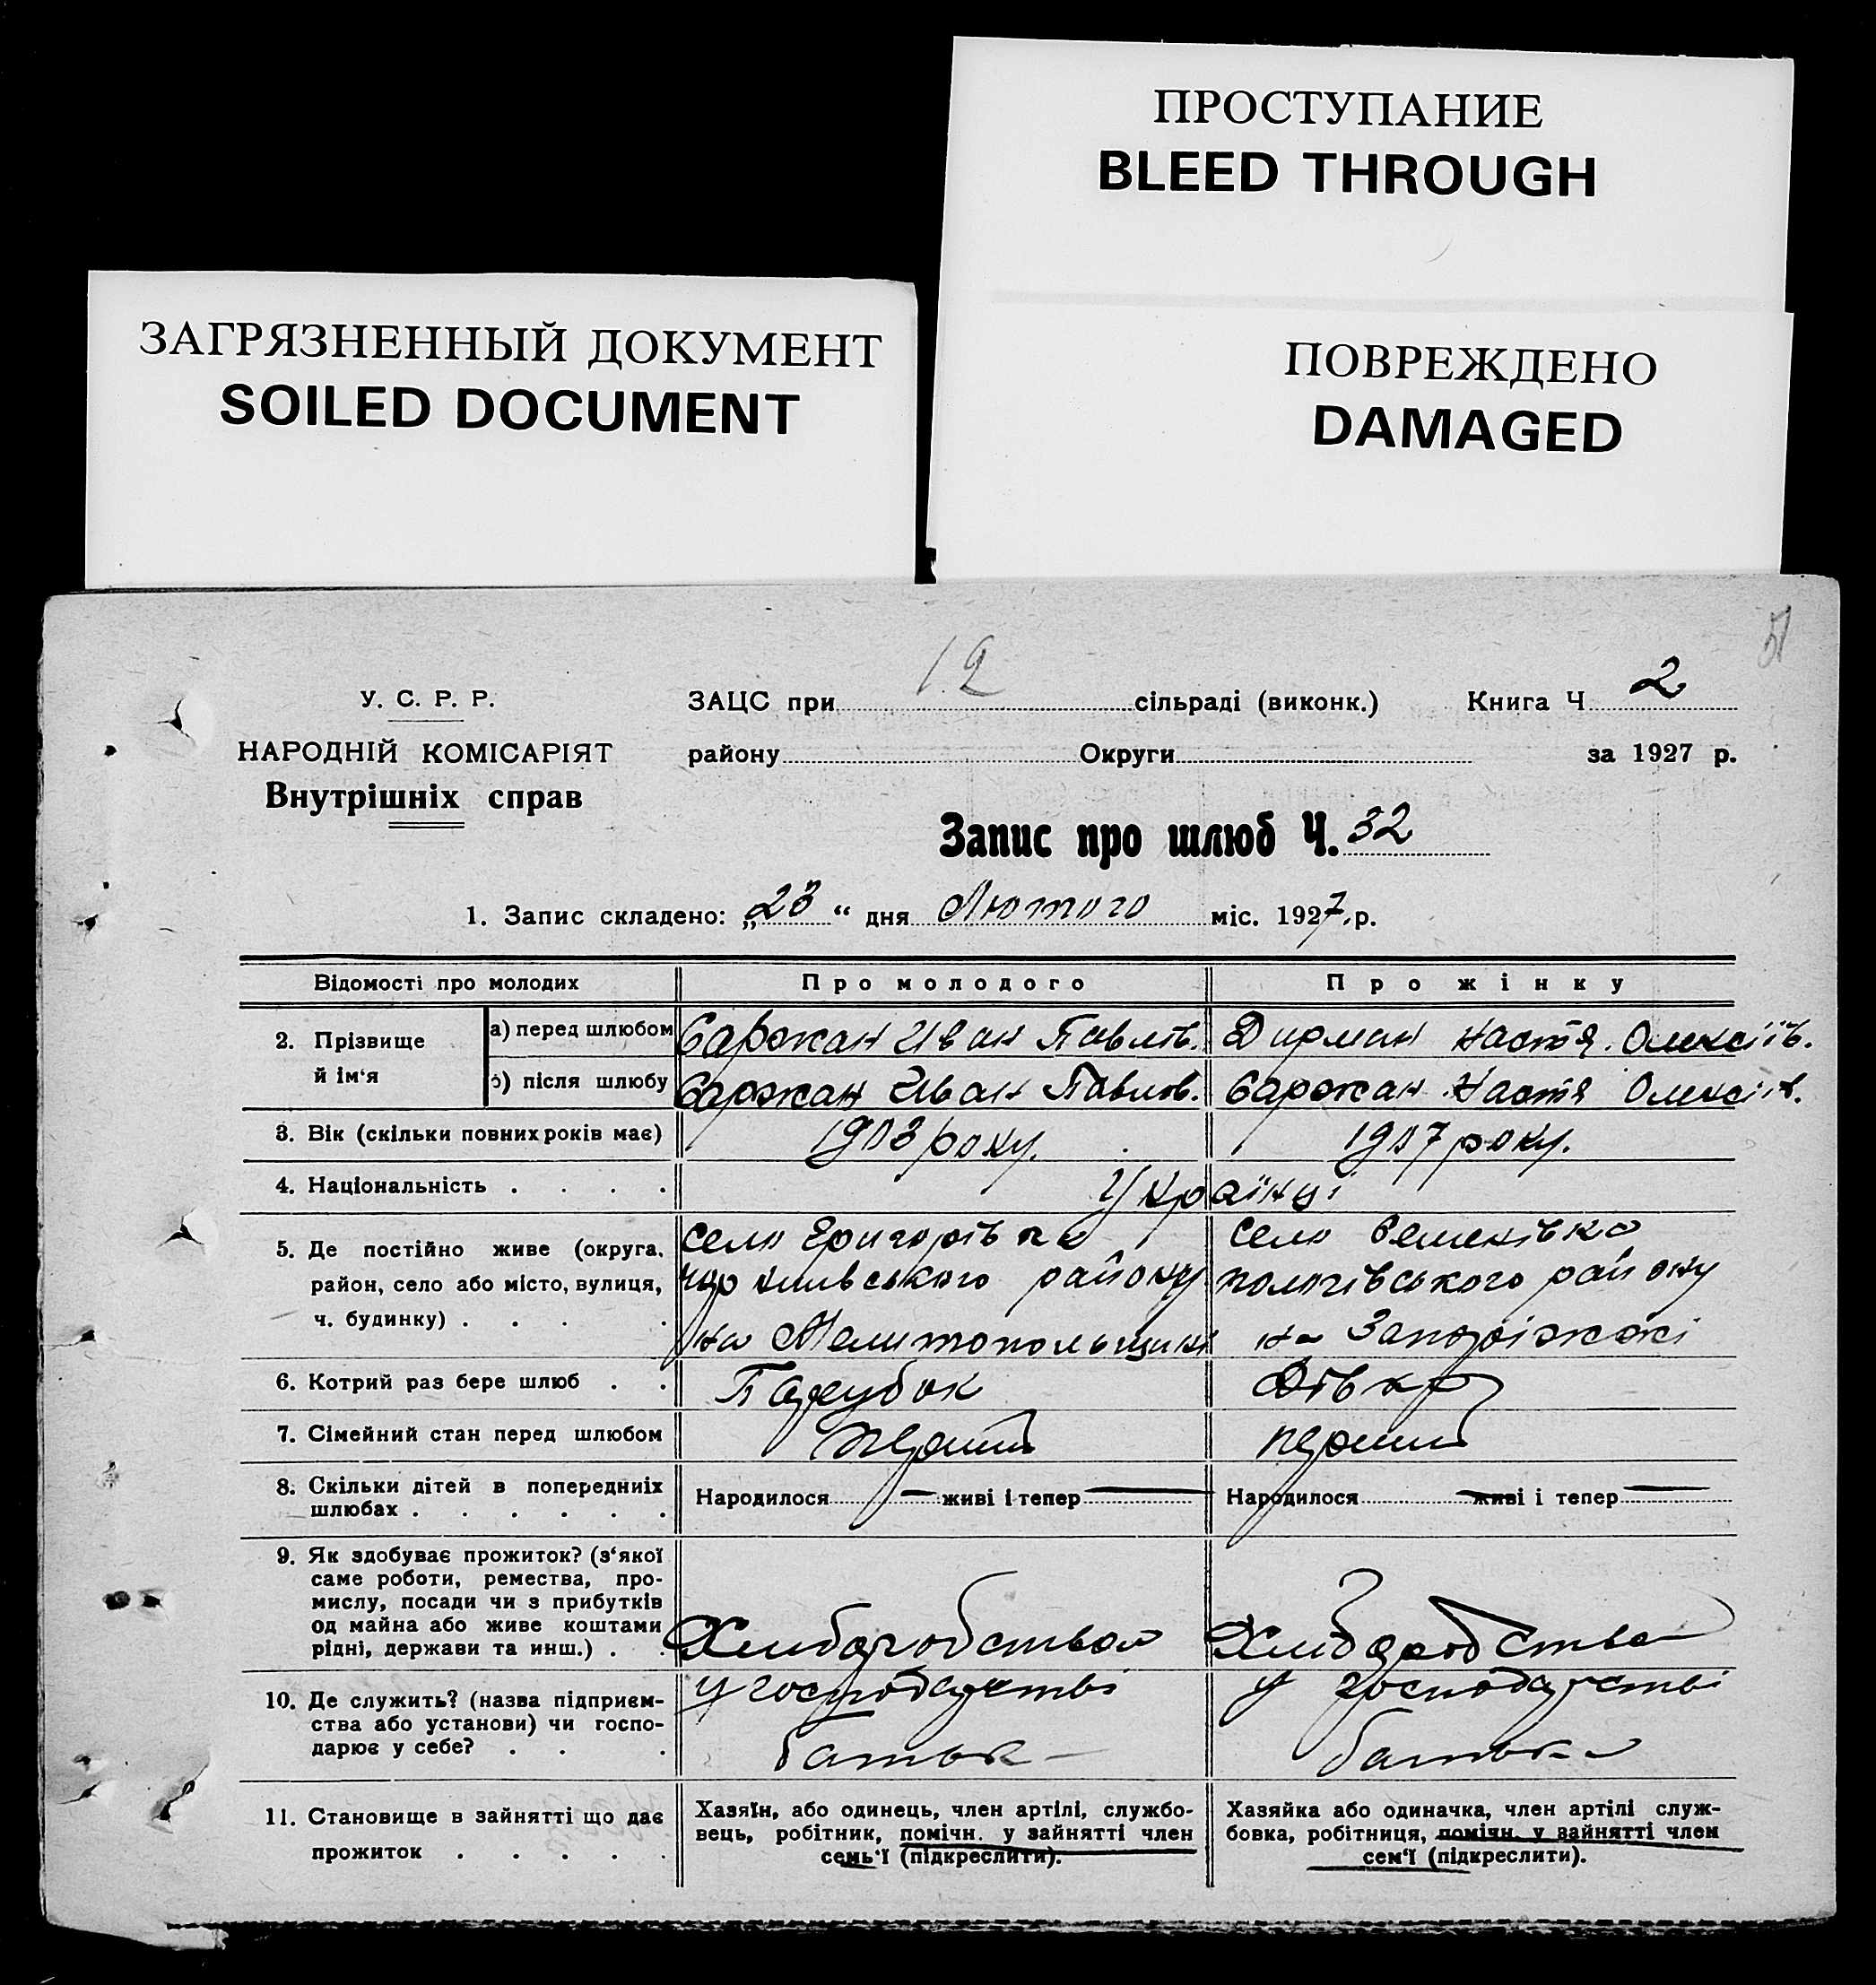 ПРОСТУПАНИЕ
BLEED THROUGH
ЗАГРЯЗНЕННЫЙ ДОКУМЕНТ
SOILED DOCUMENT
ПОВРЕЖДЕНО
DAMAGED
12
У. С. Р. Р.
ЗАЦС при сільраді (виконк.) Книга Ч 2
НАРОДНІЙ КОМІСАРІЯТ
району Округи за 1927 р.
Внутрішніх справ
Запис про шлюб Ч. 32
1. Запис складено: „23“ дня Лютого міс. 1927 р.
Відомості про молодих Про молодого Про жінку
2. Прізвище й ім‘я
а) перед шлюбом Саржан Иван Павлів. Дирман Настя Олексіїв.
б) після шлюбу Саржан Иван Павлов. Саржан Настя Олексіїв.
3. Вік (скільки повних років має) 1903 року. 1907 року.
4. Національність . . . . Українці
5. Де постійно живе (округа, село Григорівка село Семенівка
район, село або місто, вулиця, району пологівського району
ч. будинку) . . . . на Мелитопольщині на Запоріжжі
6. Котрий раз бере шлюб . . Парубок Дівка
7. Сімейний стан перед шлюбом перший перший
8. Скільки дітей в попередниіх
шлюбах . . . . . .
Народилося — живі і тепер — Народилося живі і тепер —
9. Як здобуває прожиток? (з‘якої
саме роботи, ремества, про-
мислу, посади чи з прибутків
од майна або живе коштами
рідні, держави та инш.) . .
Хлиборобство Хлиборобство
10. Де служить? (назва підприєм-
ства або установи) чи госпо-
дарює у себе? . . .
у господарстві у господарстві
батька батька
11. Становище в зайнятті що дає
прожиток . . . . .
Хазяїн, або одинець, член артілі, службо-
вець, робітник, помічн. у зайнятті член
семь‘ї (підкреслити).
Хазяйка або одиначка, член артілі служ-
бовка, робітниця, помічн. у зайнятті член
сем‘ї (підкреслити).